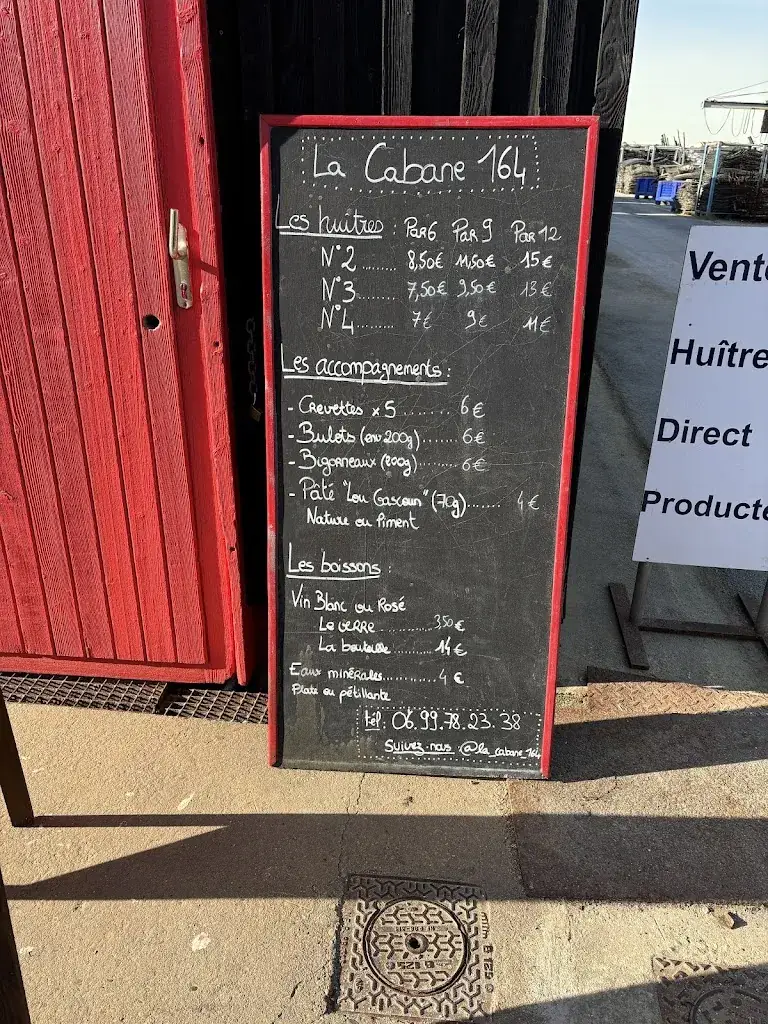 La Cabane 164
Les huîtres : Par 6 Par 9 Par 12
N°2 ........ 8,50€ 11,50€ 15€
N°3 ........ 7,50€ 9,50€ 13€
N°4 ........ 7€ 9€ 11€
Les accompagnements :
- Crevettes x5 ........ 6€
- Bulots (env 200g) ....... 6€
- Bigorneaux (200g) ........ 6€
- Pâté "Lou Gascoun" (70g) ...... 4€
Nature ou Piment
Les boissons :
Vin Blanc ou Rosé
Le verre ........... 3,50€
La bouteille .......... 14€
Eaux minérales ............ 4€
Plate ou pétillante
tél : 06.99.78.23.38
Suivez-nous : @la_cabane_164
Vente
Huître
Direct
Producte
B 125